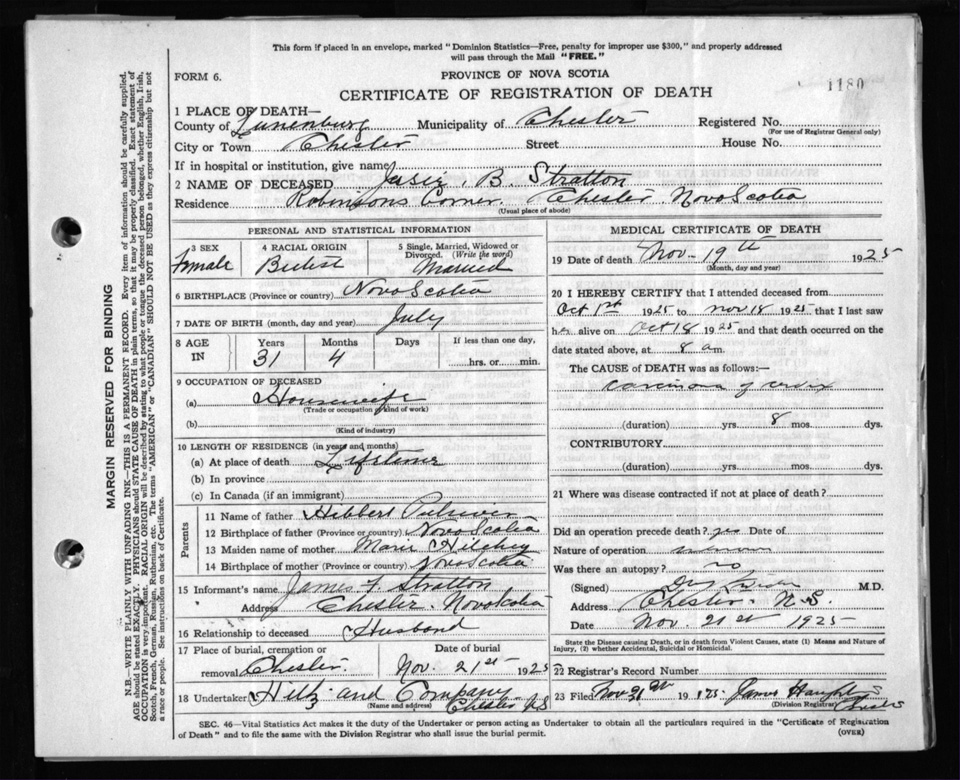 This form if placed in an envelope, marked "Dominion Statistics—Free, penalty for improper use $300," and properly addressed
will pass through the Mail "FREE."
FORM 6.
PROVINCE OF NOVA SCOTIA
1180
CERTIFICATE OF REGISTRATION OF DEATH
1 PLACE OF DEATH—
County of Lunenburg Municipality of Chester Registered No.
(For use of Registrar General only)
City or Town Chester Street House No.
If in hospital or institution, give name
2 NAME OF DECEASED B. Stratton
Residence Robinsons Corner. Chester Nova Scotia
(Usual place of abode)
PERSONAL AND STATISTICAL INFORMATION
3 SEX 4 RACIAL ORIGIN 5 Single, Married, Widowed or
Divorced. (Write the word)
Female Married
6 BIRTHPLACE (Province or country) Nova Scotia
7 DATE OF BIRTH (month, day and year) July
8 AGE IN Years Months Days If less than one day,
31 4 hrs. or min.
9 OCCUPATION OF DECEASED
(a) Housewife
(Trade or occupation kind of work)
(b)
(Kind of industry)
10 LENGTH OF RESIDENCE (in years and months)
(a) At place of death Lifetime
(b) In province
(c) In Canada (if an immigrant)
Parents
11 Name of father Hibbert
12 Birthplace of father (Province or country) Nova Scotia
13 Maiden name of mother
14 Birthplace of mother (Province or country) Nova Scotia
15 Informant's name James F Stratton
Address Chester. Nova Scotia
16 Relationship to deceased Husband
17 Place of burial, cremation or Date of burial
removal Chester. Nov. 21st 1925
18 Undertaker Hiltz and Company
(Name and address) Chester NS
MEDICAL CERTIFICATE OF DEATH
19 Date of death Nov- 19th 1925
(Month, day and year)
20 I HEREBY CERTIFY that I attended deceased from
Oct 1st 1925 to Nov 18 1925 that I last saw
her alive on Oct 18 1925 and that death occurred on the
date stated above, at 8 am.
The CAUSE of DEATH was as follows:—
carcinoma of cervix
(duration) yrs. 8 mos. dys.
CONTRIBUTORY
(duration) yrs. mos. dys.
21 Where was disease contracted if not at place of death?
Did an operation precede death? yes Date of
Nature of operation
Was there an autopsy? no
(Signed) M.D.
Address Chester. N.S.
Date Nov. 21st 1925
State the Disease causing Death, or in death from Violent Causes, state (1) Means and Nature of
Injury, (2) whether Accidental, Suicidal or Homicidal.
22 Registrar's Record Number
23 Filed Nov 192 James
(Division Registrar) Chester
SEC. 46—Vital Statistics Act makes it the duty of the Undertaker or person acting as Undertaker to obtain all the particulars required in the "Certificate of Registration
of Death" and to file the same with the Division Registrar who shall issue the burial permit.
(OVER)
MARGIN RESERVED FOR BINDING
N.B.—WRITE PLAINLY WITH UNFADING INK—THIS IS A PERMANENT RECORD. Every item of information should be carefully supplied.
AGE should be stated EXACTLY. PHYSICIANS should STATE CAUSE OF DEATH in plain terms, so that it may be properly classified. Exact statement of
OCCUPATION is very important. RACIAL ORIGIN will be described by stating to what people or tongue the deceased person belonged, whether English, Irish,
Scotch, French, German, Russian, Ruthenian, etc. The terms "AMERICAN" or "CANADIAN" SHOULD NOT BE USED as they express citizenship but not
a race or people. See instructions on back of Certificate.